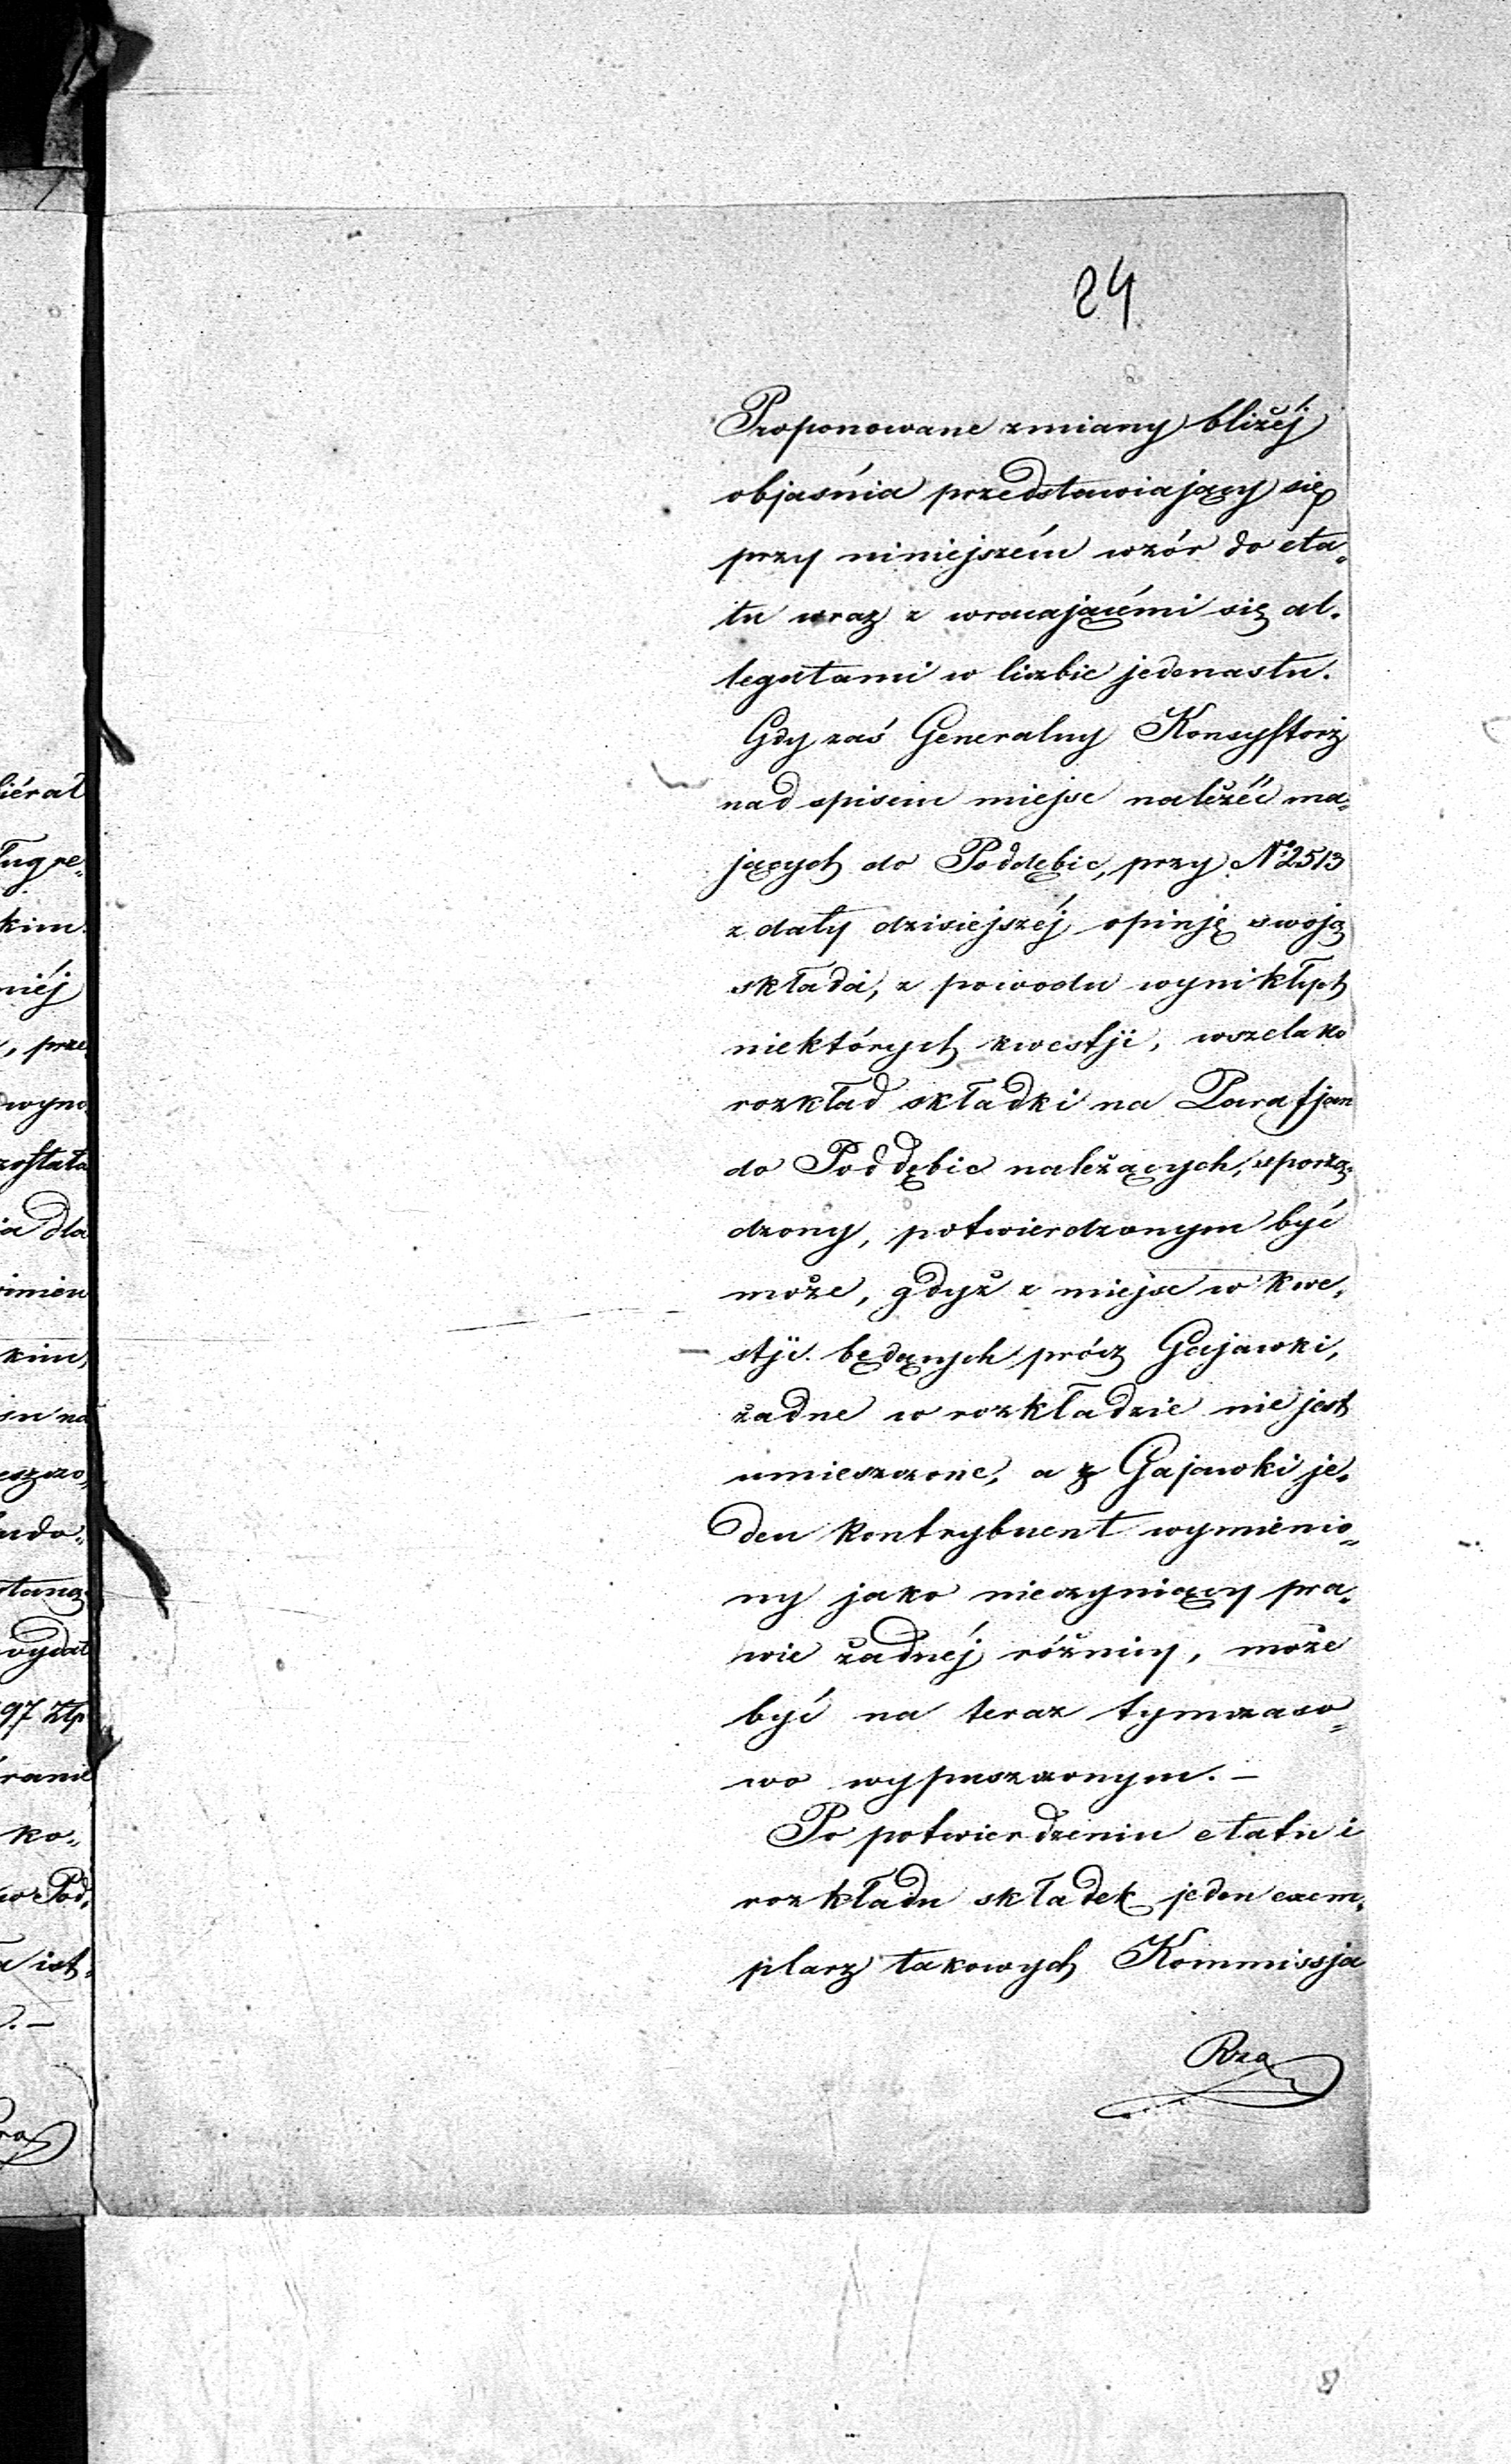 24
Proponowane zmiany bliżéj
objaśnia przedstawiający się
przy niniejszém wzór do eta„
tu wraz z wracającémi się al„
legatami w liczbie jedenastu.
Gdy zaś Generalny Konsystorz
nad spisem miejsc należéć ma„
jących do Poddębic, przy No 2513
z daty dzisiejszéj opinję swoją
składa, z powodu wynikłych
niektórych kwestji, wszelako
rozkład składki na Parafjan
do Poddębic należących, sporzą„
dzony, potwierdzonym być
może, gdyż z miejsc w kwe„
stji będących prócz Gajawki,
żadne w rozkładzie nie jest
umieszczone, a z Gajawki je„
den kontrybuent wymienio„
ny jako nieczyniący pra„
wie żadnéj różnicy, może
być na teraz tymczaso„
wo wypuszczonym. –
Po potwierdzeniu etatu i
rozkładu składek jeden exem„
plarz takowych Kommissja
Rzą
liérał
kim
niéj
, prze„
wym
zostało
ia dla
imieu
kim,
su na
tudo„
stang
wydat
97 Złp
ranie
ko„
w Pod„
ist„
. –